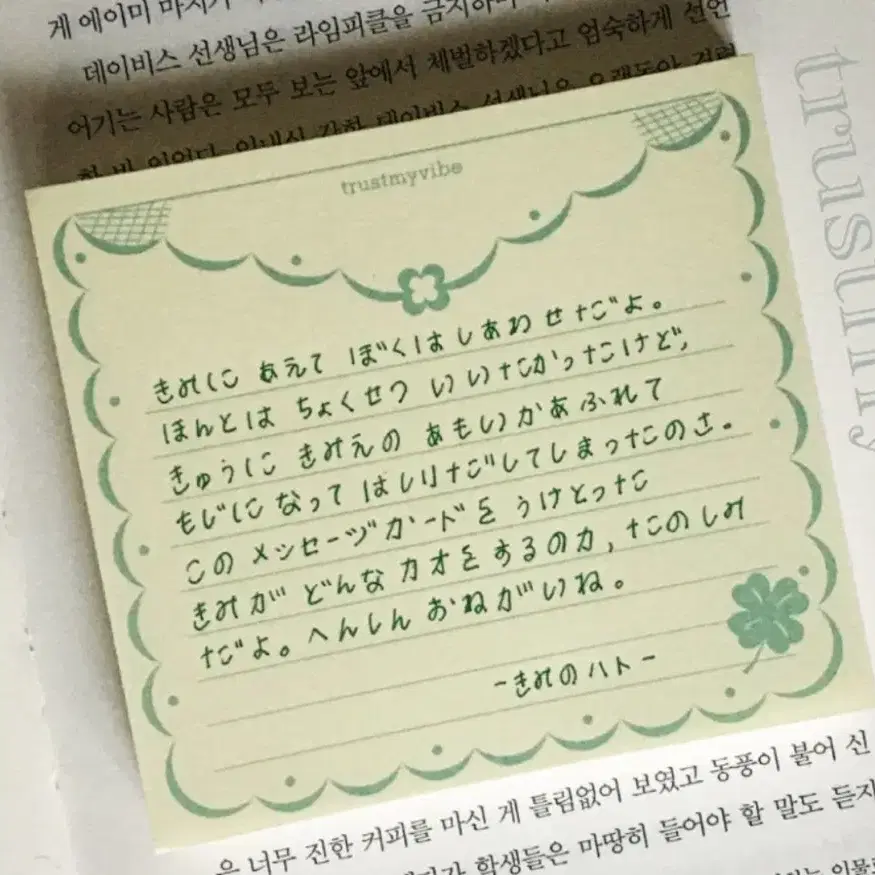 게 에이미
데이비스 선생님은 라임피클을 금지하
어기는 사람은 모두 보는 앞에서 체벌하겠다고 엄숙하게 선언
trustmyvibe
きみに あえて ぼくは しあわせだよ。
ほんとは ちょくせつ いいたかったけど、
きゅうに きみえの あもいがあふれて
もじに なって はしりだしてしまったのさ。
この メッセージカードを うけとった
きみが どんな カオをするのか, たのしみ
だよ。へんしん おねがいね。
-きみのハト-
은 너무 진한 커피를 마신 게 틀림없어 보였고 동풍이 불어 신
학생들은 마땅히 들어야 할 말도 듣지